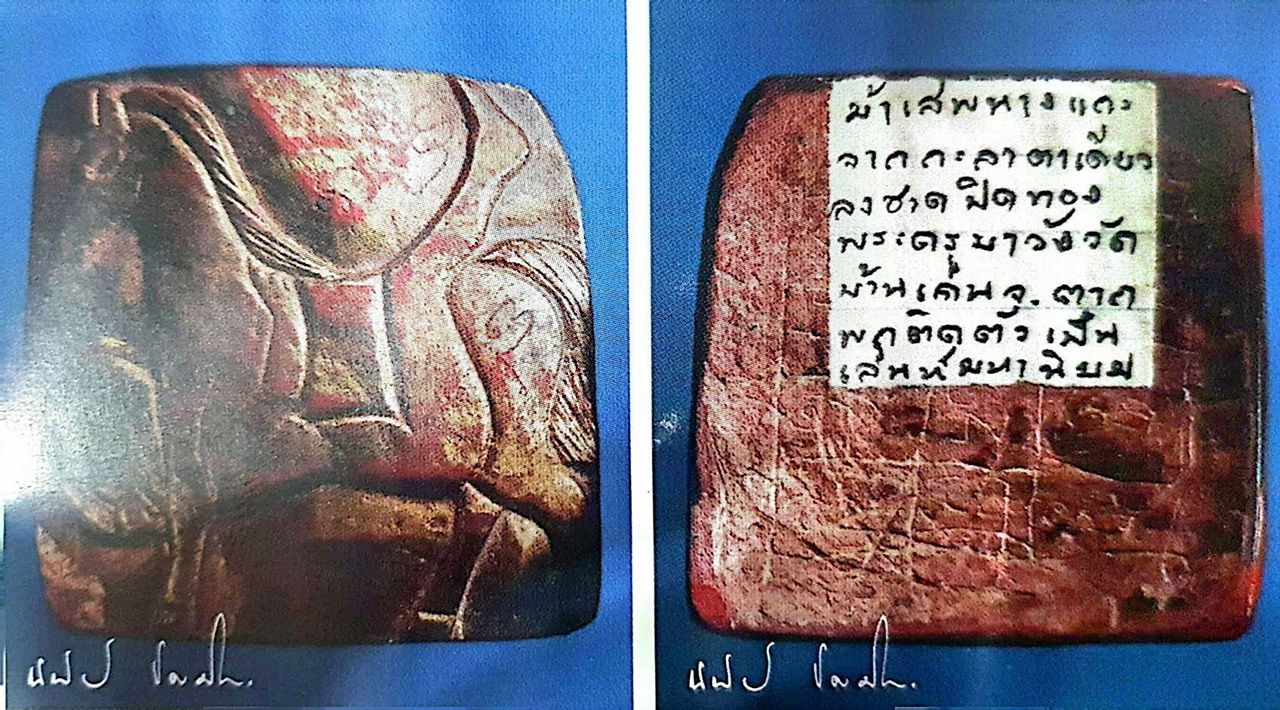 ม้าเสพนางแกะ
จากกะลาตาเดียว
ลงชาดปิดทอง
พระครูบาวังวัด
บ้านเด่นจ.ตาก
พกติดตัวเป็น
เสน่ห์มหานิยม